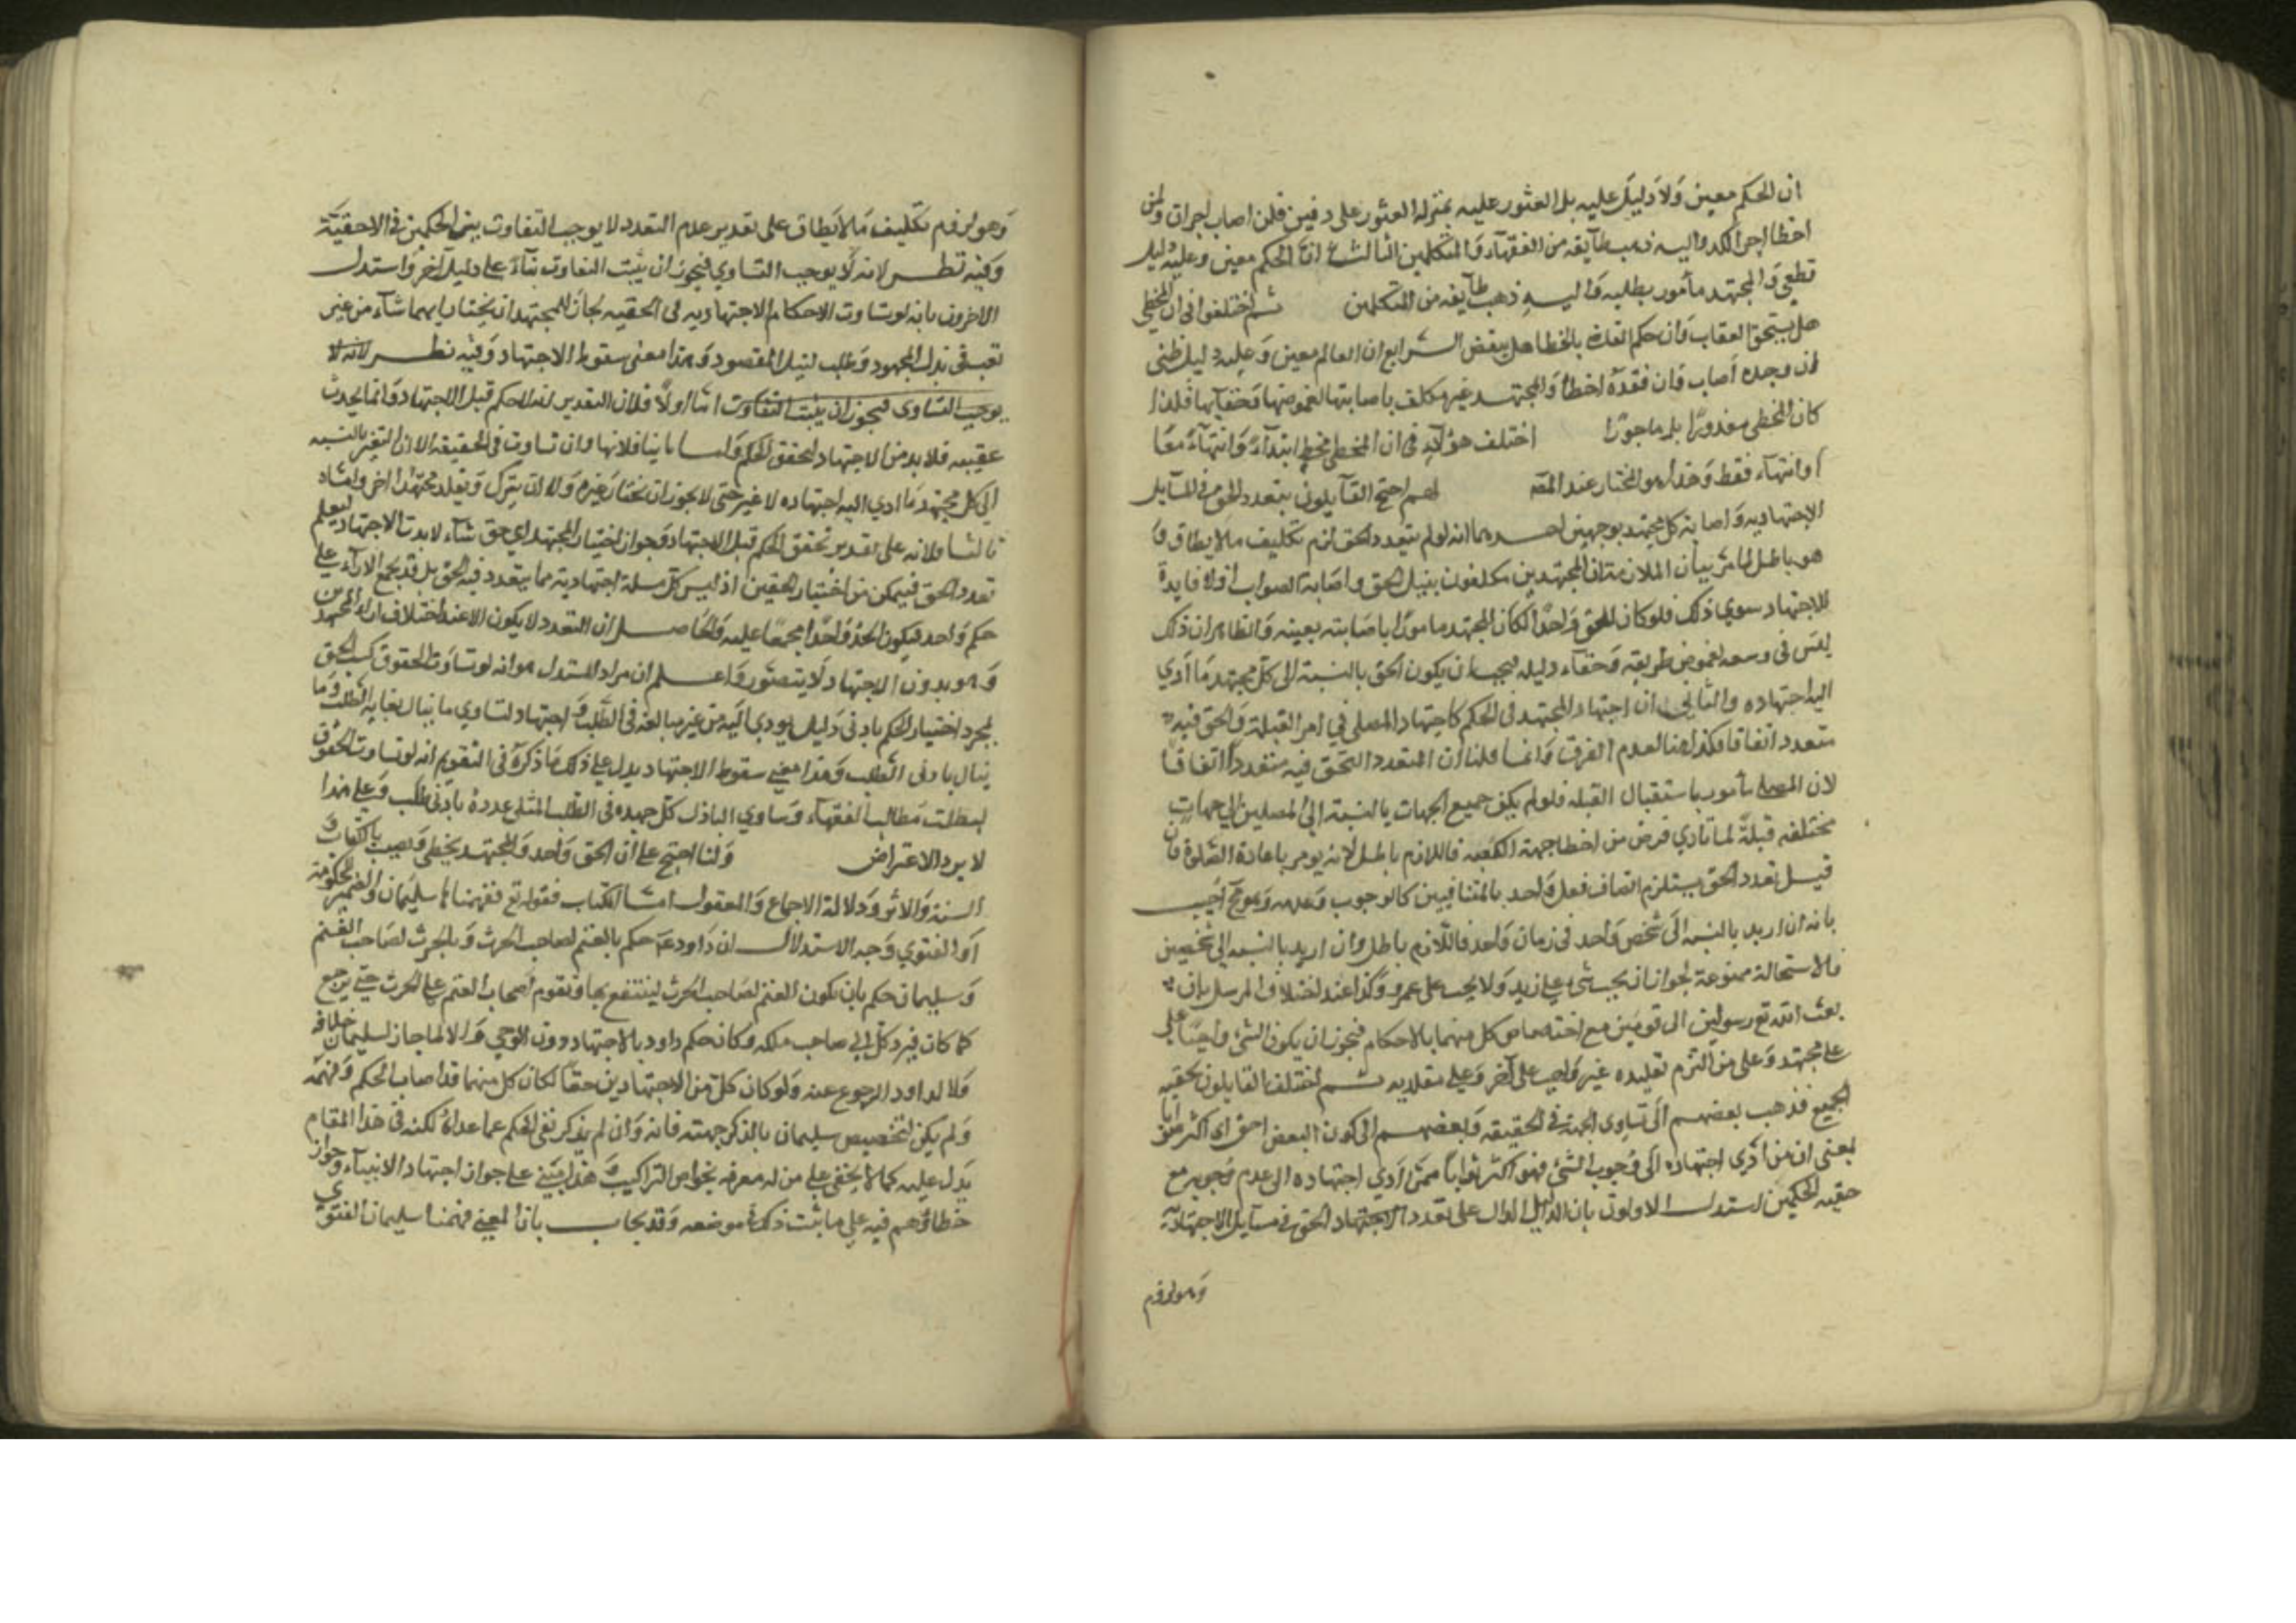 ان الحكم معين ولا دليل عليه بل العثور عليه بمنزلة العثور على دفين فلن اصاب اجران ولمن
اخطا اجر الكد واليه ذهب طايفه من الفقهاء والمتكلمين الثالث ان الحكم معين وعليه دليل
قطعي والمجتهد مأمور بطلبه واليه ذهب طايفه من المتكلمين ثم اختلفوا في ان المخطي
هل يستحق العقاب وان حكم القاضي بالخطا هل ينقض الرابع ان الحكم معين وعليه دليل ظني
ان وجده اصاب وان فقده اخطا والمجتهد غير مكلف باصابتها لغموضها وخفايها فلذا
كان المخطي معذورًا بل ماجورًا اختلف هؤلاء في ان المخطي مخطٍ ابتداءً وانتهاءً معًا
او انتهاء فقط وهذا هو المختار عند المصـ احتج القايلون بتعدد الحق في المسايل
الاجتهاديه واصابة كل مجتهد بوجهين احدهما انه لو لم يتعدد الحق لزم تكليف ما لا يطاق و
هو باطل لما مر بيان الملازمة ان المجتهدين مكلفون بنيل الحق واصابة الصواب اذ لا فايدة
للاجتهاد سوي ذلك فلو كان الحق واحدًا لكان المجتهد مامورًا باصابته بعينه والظاهر ان ذلك
ليس في وسعه لغموض طريقه وخفاء دليله فيجب ان يكون الحق بالنسبة الى كل مجتهد ما ادي
اليه اجتهاده والثاني ان اجتهاد المجتهد في الحكم كاجتهاد المصلي في امر القبلة والحق فيه
متعدد اتفاقا فكذا هنا لعدم الفرق وانما قلنا ان المتعدد الحق فيه متعدد اتفاقًا
لان المصلي مأمور باستقبال القبله فلو لم يكن جميع الجهات بالنسبة الى المصلين الى جهات
مختلفه قبلةً لما تادي فرض من اخطا جهة الكعبه فاللازم باطل لانه لا يومر باعادة الصلوة فان
قيل تعدد الحق يستلزم اتصاف فعل واحد بالمتنافيين كالوجوب وعدمه وهو مح اجيب
بانه ان اريد بالنسبة الى شخص واحد في زمان واحد فاللازم باطل وان اريد بالنسبه الى شخصين
فالاستحالة ممنوعة لجواز ان يجب شيء على زيد ولا يجب على عمرو وكذا عند اختلاف الرسل بان
بعث الله تع رسولين الى قومين مع اختصاص كل منهما بالاحكام فيجوز ان يكون الشي واجبًا على
على مجتهد وعلى من التزم تقليده غير واجب على آخر وعلى مقلديه ثم اختلف القايلون بحقيه
الجميع فذهب بعضهم الى تساوي الجهة في الحقيقه وبعضهم الى كون البعض احق اي اكثر ثوابا
بمعنى ان من ادي اجتهاده الى وجوب الشي فهو اكثر ثوابًا ممن ادي اجتهاده الى عدم وجوبه مع
حقيه الحكمين استدل الاولون بان الدليل الدال على تعدد الحق في مسايل الاجتهادية
وهو لزوم
وهو لزوم تكليف ما لا يطاق على تقدير عدم التعدد لا يوجب التفاوت بين الحكمين في الاحقيّة
وفيه نظر لانه لا يوجب التساوي فيجوز ان يثبت التفاوت بناءً على دليل آخر واستدل
الاخرون بانه لو تساوت الاحكام الاجتهاديه في الحقيه لجاز للمجتهد ان يختار ايهما شاء من غير
تعب في بذل المجهود وطلب لنيل المقصود وهذا معنى سقوط الاجتهاد وفيه نظر لانه لا
يوجب التساوى فيجوز ان يثبت التفاوت اما اولًا فلان التقدير ان لا حكم قبل الاجتهاد وانما يحدث
عقيبه فلا بد من الاجتهاد ليتحقق الحكم واما ثانيا فلانها وان تساوت في الحقيقه الا ان التغير بالنسبه
الى كل مجتهد ما ادي اليه اجتهاده لا غير حتى لا يجوز ان يختار غيره ولا ان يترك ويقلد مجتهدا اخر واما
ثالثا فلانه على تقدير تحقق الحكم قبل الاجتهاد وجواز اختيار المجتهد اي حق شاء لا بد من الاجتهاد ليعلم
تعدد الحق فيمكن من اختيار الحقين اذ ليس كل مسلة اجتهادية مما يتعدد فيه الحق بل قد يجمع الاراء على
حكم واحد فيكون الحق واحدًا مجمعًا عليه والحاصل ان التعدد لا يكون الا عند اختلاف اراء المجتهدين
وهو بدون الاجتهاد لا يتصور واعلم ان مراد المستدل هو انه لو تساوت الحقوق كسب الحق
بمجرد اختيار الحكم بادنى دليل يودي اليه من غير مبالغه في الطلب و اجتهاد لتساوي ما ينال بغاية الطلب وما
ينال بادنى الطلب وهذا معنى سقوط الاجتهاد يدل على ذلك ما ذكره في التقويم انه لو تساوت الحقوق
لبطلت مطالب الفقهاء وساوي الباذل كل جهده في الطلب المثلي عذره بادنى طلب وعلى هذا
لا يرد الاعتراض ولنا احتج على ان الحق واحد والمجتهد يخطي ويصيب بالكتاب و
السنة والاثر ودلالة الاجماع والمعقول اما الكتاب فقوله تع ففهمناها سليمان والضمير للحكومة
او الفتوي وجه الاستدلال ان داود عم حكم بالغنم لصاحب الحرث وبالحرث لصاحب الغنم
وسليمان حكم بان يكون الغنم لصاحب الحرث لينتفع بها وتقوم اصحاب الغنم على الحرث حتى يرجع
كما كان فيرد كل الى صاحبه ملكه وكان حكم داود بالاجتهاد دون الوحي والا لما جاز لسليمان خلافه
ولا لداود الرجوع عنه ولو كان كل من الاجتهادين حقًا لكان كل منهما قد اصاب الحكم وفهمه
ولم يكن لتخصيص سليمان بالذكر جهته فانه وان لم يذكر نفى الحكم عما عداه لكنه في هذا المقام
يدل عليه كما لا يخفى على من له معرفه بخواص التراكيب و هذا مبني على جواز اجتهاد الانبياء وجواز
خطاؤهم فيه على ما ثبت ذلك في موضعه وقد يجاب بان المعنى ففهمنا سليمان الفتوي